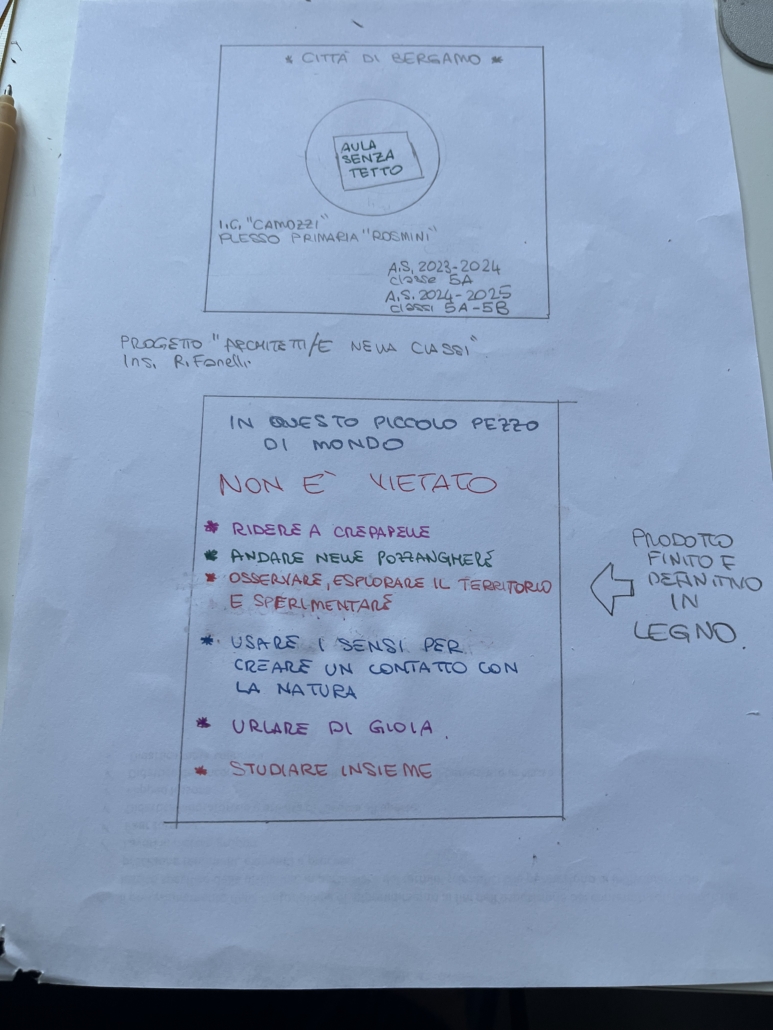 * CITTÀ DI BERGAMO *
AULA
SENZA
TETTO
I.C. "CAMOZZI"
PLESSO PRIMARIA "ROSMINI"
A.S. 2023-2024
classe 5A
A.S. 2024-2025
classi 5A-5B
PROGETTO "ARCHITETTI/E NELLA CLASSI"
Ins. R. Fanelli.
IN QUESTO PICCOLO PEZZO
DI MONDO
NON È VIETATO
* RIDERE A CREPAPELLE
* ANDARE NELLE POZZANGHERE
* OSSERVARE, ESPLORARE IL TERRITORIO
E SPERIMENTARE
* USARE I SENSI PER
CREARE UN CONTATTO CON
LA NATURA
* URLARE DI GIOIA.
* STUDIARE INSIEME
PRODOTTO
FINITO E
DEFINITIVO
IN
LEGNO.